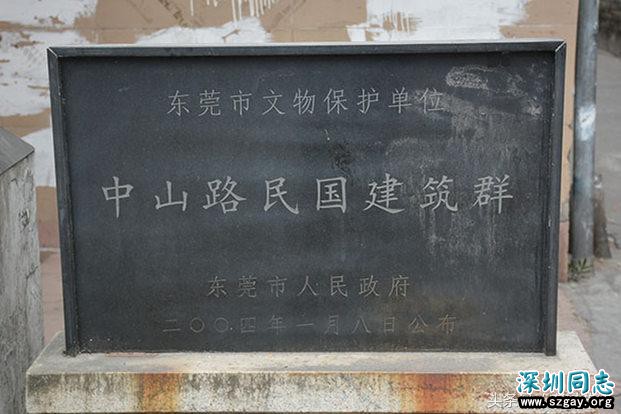 东莞市文物保护单位
中山路民国建筑群
东莞市人民政府
二〇〇四年一月八日公布
深圳同志
www.szgay.org